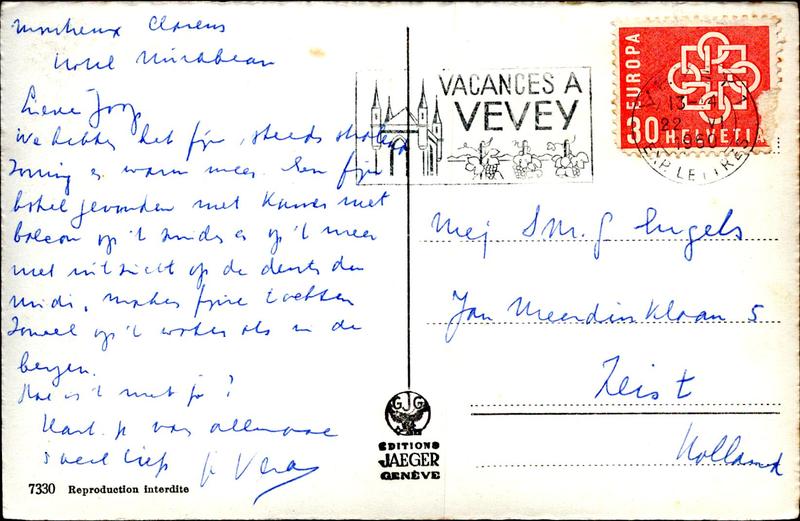 Montreux Clarens
Hotel Mirabeau
Lieve Joop
We hebben het fijn, steeds stralend
zonnig en warm weer. Een fijn
hotel gevonden met kamer met
balcon op 't zuiden en op 't meer
met uitzicht op de dents du
midi, maken fijne tochten
zowel op 't water als in de
bergen.
Hoe is 't met je?
Hart. gr van allemaal
veel liefs je Vera
7330 Reproduction interdite
GJG
EDITIONS
JAEGER
GENÈVE
VACANCES A
VEVEY
EUROPA
30 HELVETIA
13-14
22 VI
1960
EXP. LETTRES
Mej S.M.G Engels
Jan Meerdinklaan 5
Zeist
Holland